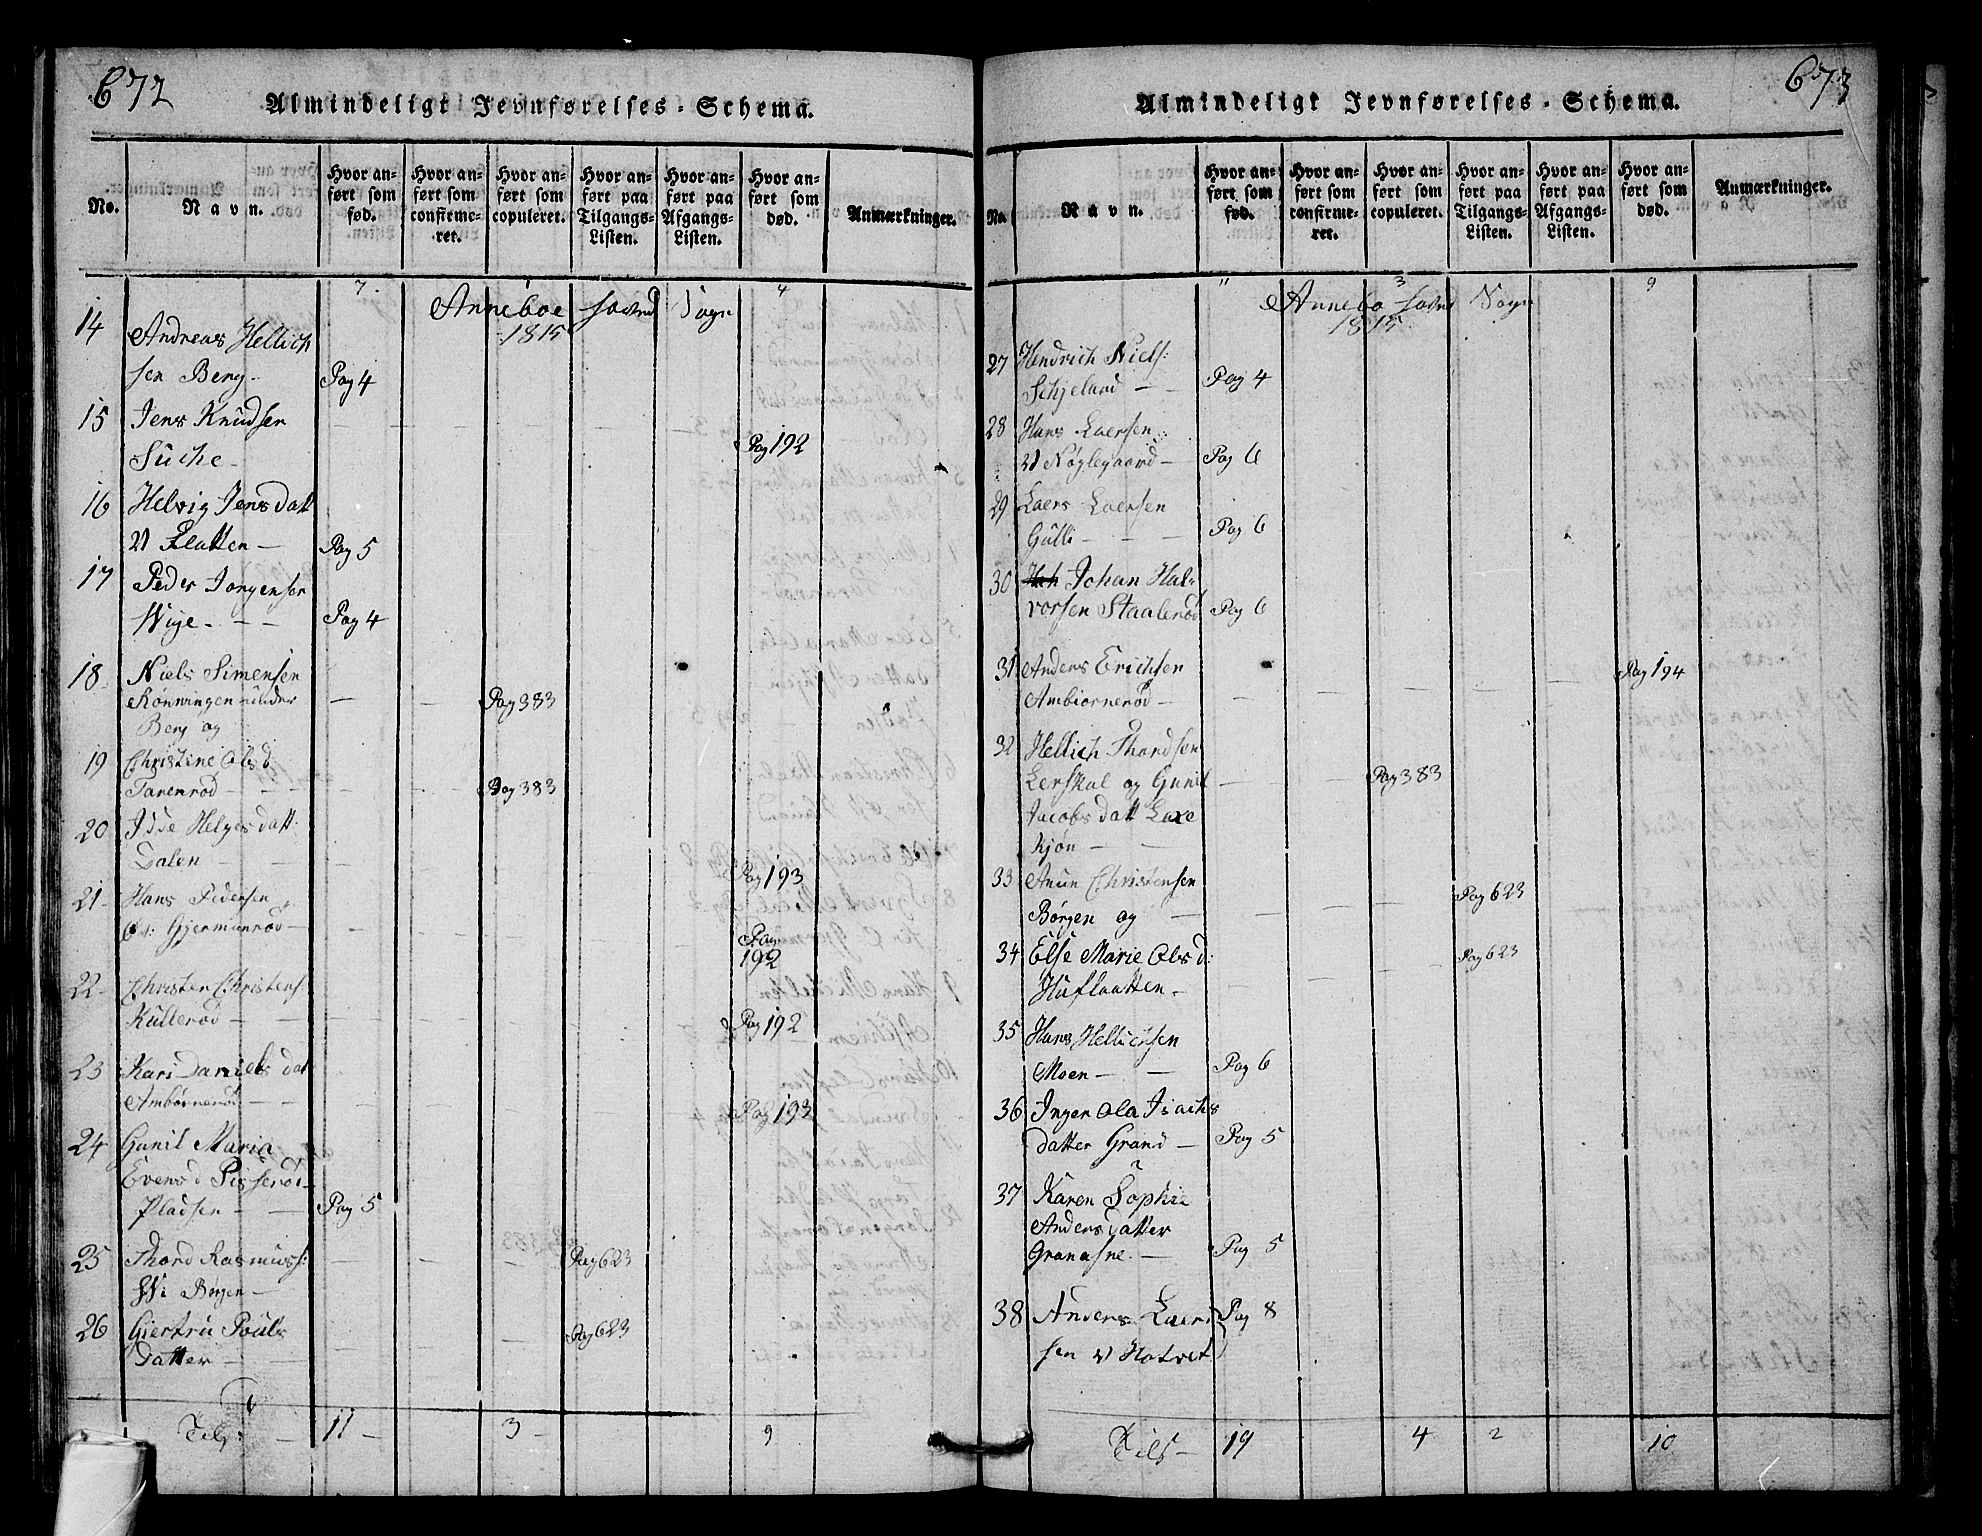 672
Almindeligt Jevnførelses-Schema.
No.
Navn.
Hvor anført som fød.
Hvor anført som confirmeret.
Hvor anført som copuleret.
Hvor anført paa Tilgangs-Listen.
Hvor anført paa Afgangs-Listen.
Hvor anført som død.
Anmærkninger.
7. 4
Anneboe hoved Sogn
1815
14 Andreas Hellich
sen Berg. Pag 4
15 Jens Knudsen
Suche. Pag 192
16 Helvig Jens datt
V Platten — Pag 5
17 Peder Jørgensen
Wige. — — Pag 4
18. Niels Simensen
Rønningen under — Pag 383
Berg og
19 Christine Olsd
Tanemrød — Pag 383
20 Idde Helges datt:
Dalen — Pag 193
21. Hans Pedersen
Gjermunrød — Pag 192
22. Christen Christens
Kullerød — Pag 192
23 Kari Daniels dat
Ambørnerød — Pag 193
24 Gunil Maria
Evensd Pisserød
Pladsen — Pag 5
25 Thord Rasmuss: Pag 623
Wi Børgen —
26 Giertru Pouls Pag 623
datter —
Tils: — 11 — 3 — 9
673
Almindeligt Jevnførelses-Schema.
No.
Navn.
Hvor anført som fød.
Hvor anført som confirmeret.
Hvor anført som copuleret.
Hvor anført paa Tilgangs-Listen.
Hvor anført paa Afgangs-Listen.
Hvor anført som død.
Anmærkninger.
11 3 9
Annebo hoved Sogn
1815.
27 Hendrich Niels:
Schjelland — — Pag 4
28 Hans Laersen
V Nøglegaard — Pag 6
29 Laers Laersen
Gulli — — — Pag 6
30 Johan Hal-
vorsen Staalerød Pag 6
31 Anders Erichsen Pag 194
Ambiørnerød —
32 Hellich Thordsen
Lerskal og Gunil — Pag 383
Jacobs datt Laxe
kjøn — —
33 Anun Christensen Pag 623
Børgen og —
34 Else Marie Olsd: Pag 623
Huflaatten —
35 Hans Hellichsen
Moen — — Pag 6
36 Inger Ola Isachs
datter Grand — Pag 5
37 Karen Sophie
Anders datter
Granasne. — Pag 5
38 Anders Laer Pag 8
sen V Hotvet
Tils — 19 4 2 10